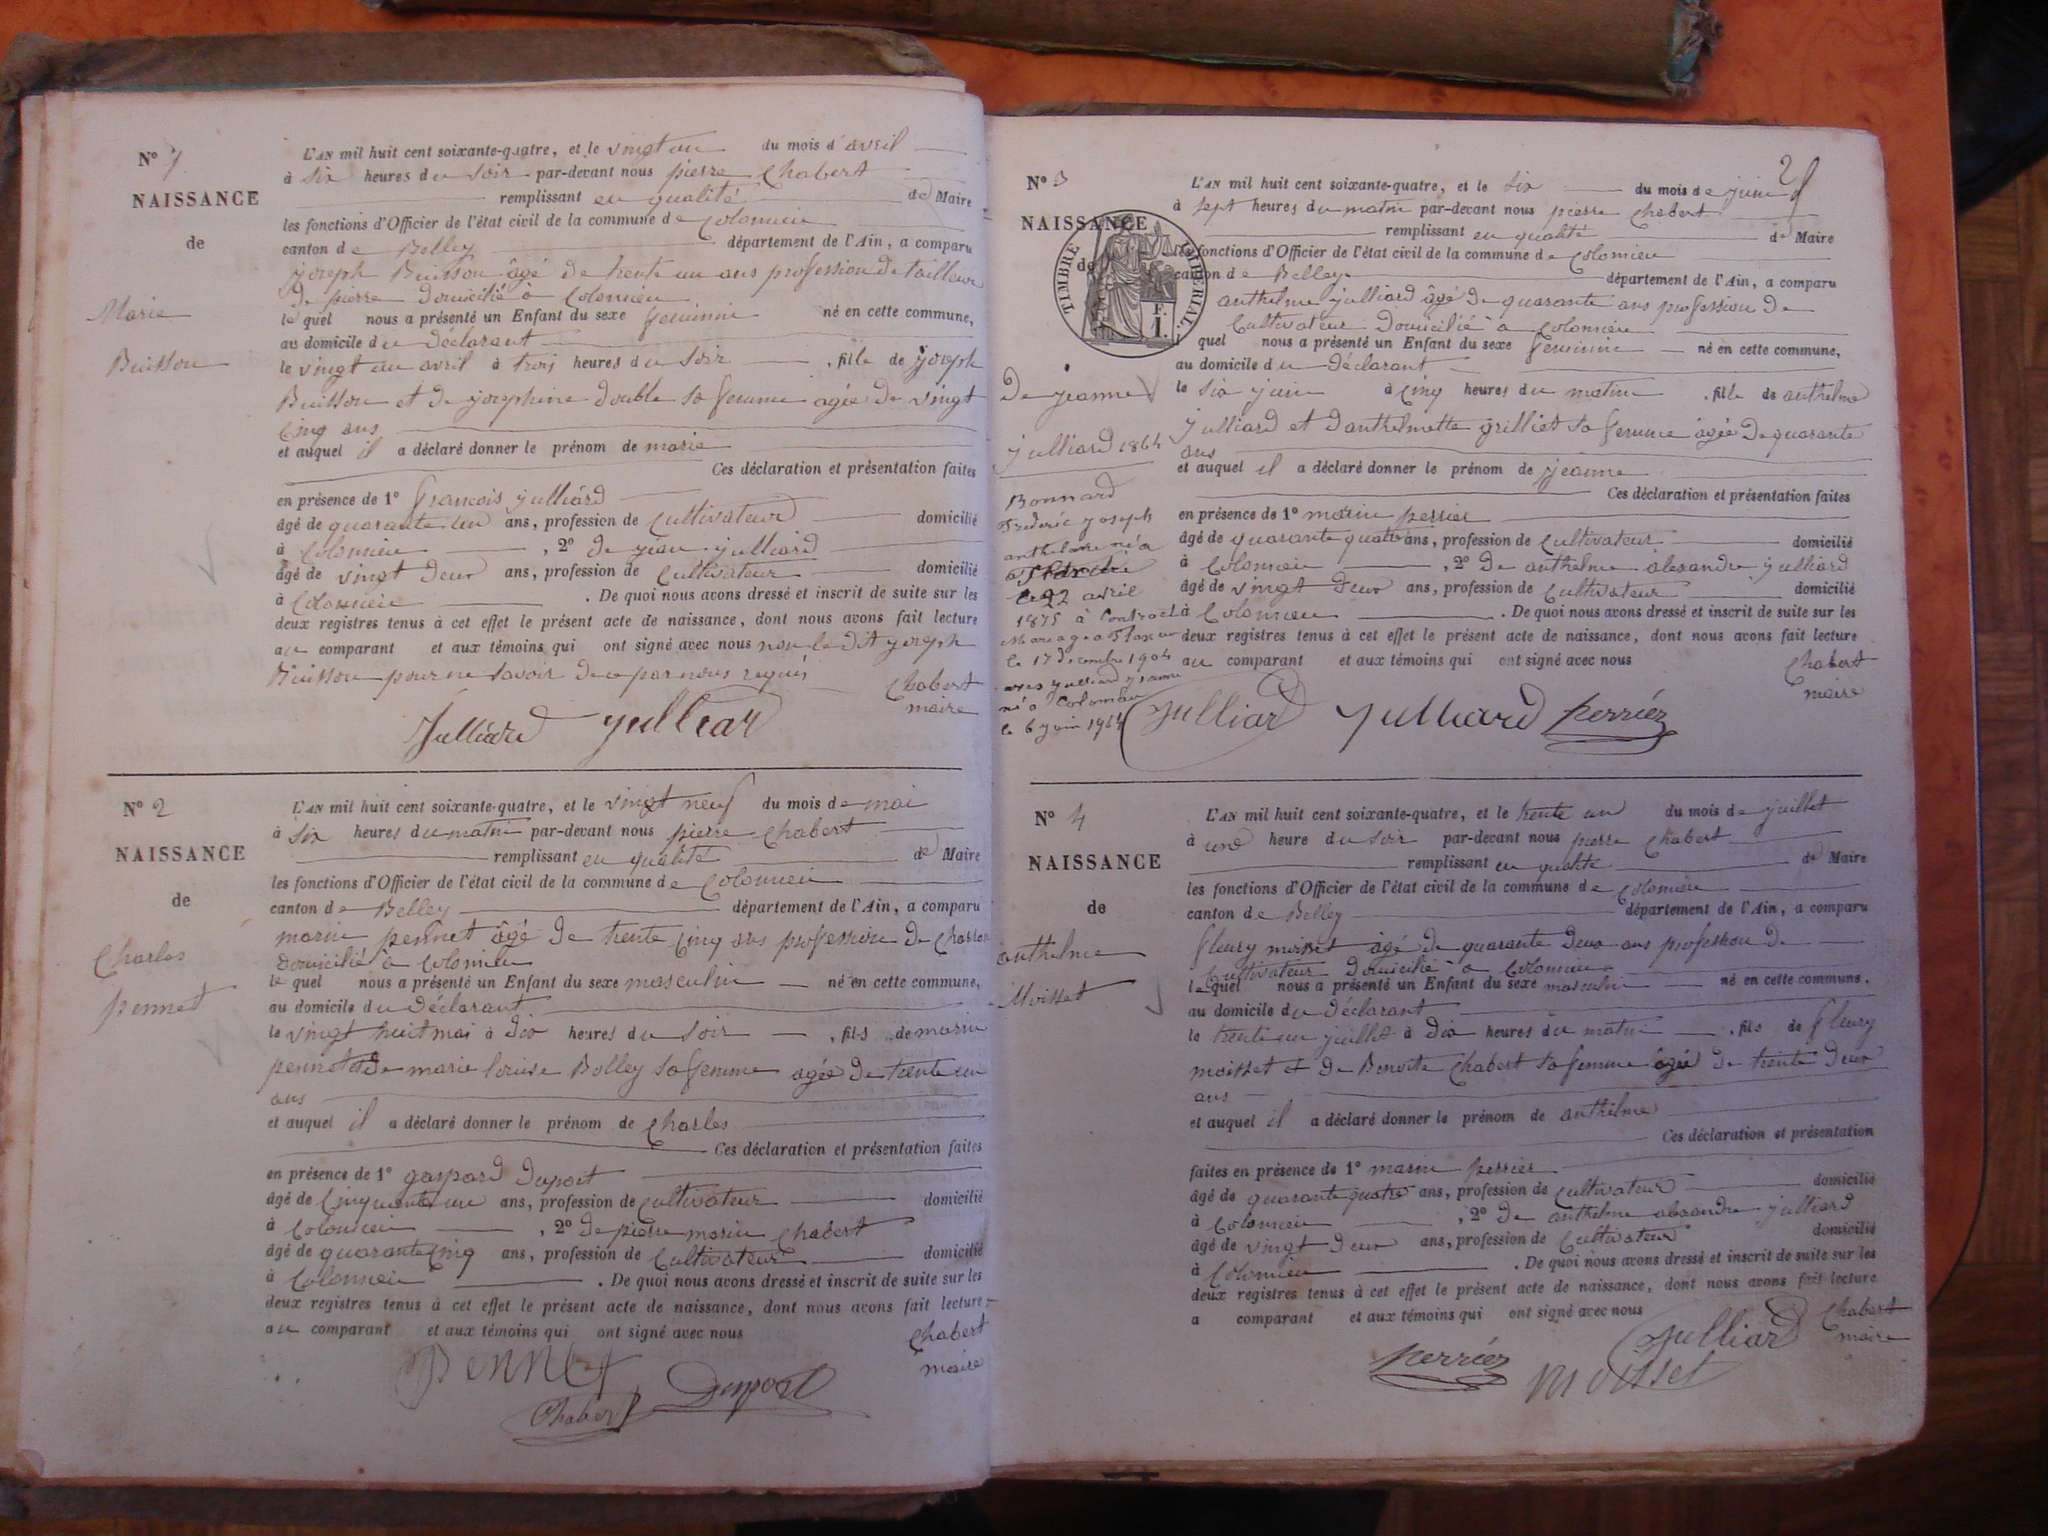 N° 1
NAISSANCE
de
Marie
Buisson
L'AN mil huit cent soixante-quatre, et le vingt un du mois d'avril
à six heures du soir par-devant nous pierre Chabert
remplissant en qualité de Maire
les fonctions d'Officier de l'état civil de la commune de Colomieu
canton de Belley département de l'Ain, a comparu
joseph Buisson âgé de trente un ans profession de tailleur
de pierre domicilié à Colomieu
le quel nous a présenté un Enfant du sexe feminin né en cette commune,
au domicile du Déclarant
le vingt un avril à trois heures du soir , fille de joseph
Buisson et de josephine double sa femme agée de vingt
cinq ans
et auquel il a déclaré donner le prénom de marie
Ces déclaration et présentation faites
en présence de 1° françois julliard
âgé de quarante un ans, profession de cultivateur domicilié
à Colomieu , 2° de jean julliard
âgé de vingt deux ans, profession de cultivateur domicilié
à Colomieu . De quoi nous avons dressé et inscrit de suite sur les
deux registres tenus à cet effet le présent acte de naissance, dont nous avons fait lecture
au comparant et aux témoins qui ont signé avec nous non le dit joseph
Buisson pour ne savoir de ce par nous requis
Chabert
maire
Julliard julliard
N° 2
NAISSANCE
de
Charles
pennet
L'AN mil huit cent soixante-quatre, et le vingt neuf du mois de mai
à six heures du matin par-devant nous pierre Chabert
remplissant en qualité de Maire
les fonctions d'Officier de l'état civil de la commune de Colomieu
canton de Belley département de l'Ain, a comparu
marin pennet âgé de trente cinq ans profession de
domicilié à Colomieu
le quel nous a présenté un Enfant du sexe masculin né en cette commune,
au domicile du Déclarant
le vingt huit mai à dix heures du soir , fils de marin
pennet et de marie louise Bolley sa femme agée de trente un
ans
et auquel il a déclaré donner le prénom de Charles
Ces déclaration et présentation faites
en présence de 1° gaspard Duport
âgé de cinquante un ans, profession de cultivateur domicilié
à Colomieu , 2° de pierre marin Chabert
âgé de quarante cinq ans, profession de cultivateur domicilié
à Colomieu . De quoi nous avons dressé et inscrit de suite sur les
deux registres tenus à cet effet le présent acte de naissance, dont nous avons fait lecture
au comparant et aux témoins qui ont signé avec nous
Chabert
maire
PENNET
Chabert Duport
N° 3
NAISSANCE
de
TIMBRE IMPÉRIAL
F.
1.
de jeanne
julliard 1864
Bonnard
frederic joseph
anthelme né a
le 22 avril
1875 à Contracté
Mariage a
le 17 decembre 1904
avec julliard jeanne
né a Colomieu
le 6 juin 1864
L'AN mil huit cent soixante-quatre, et le six du mois de juin
à sept heures du matin par-devant nous pierre Chabert
remplissant en qualité de Maire
les fonctions d'Officier de l'état civil de la commune de Colomieu
canton de Belley département de l'Ain, a comparu
anthelme julliard âgé de quarante ans profession de
cultivateur domicilié à Colomieu
l quel nous a présenté un Enfant du sexe feminin né en cette commune,
au domicile du Déclarant
le six juin à cinq heures du matin , fille de anthelme
julliard et d'anthelmette grilliet sa femme agée de quarante
ans
et auquel il a déclaré donner le prénom de jeanne
Ces déclaration et présentation faites
en présence de 1° marin perrier
âgé de quarante quatre ans, profession de cultivateur domicilié
à Colomieu , 2° de anthelme alexandre julliard
âgé de vingt deux ans, profession de cultivateur domicilié
à Colomieu . De quoi nous avons dressé et inscrit de suite sur les
deux registres tenus à cet effet le présent acte de naissance, dont nous avons fait lecture
au comparant et aux témoins qui ont signé avec nous
Chabert
maire
julliard julliard perriér
N° 4
NAISSANCE
de
anthelme
Moisset
L'AN mil huit cent soixante-quatre, et le trente un du mois de juillet
à une heure du soir par-devant nous pierre Chabert
remplissant en qualité de Maire
les fonctions d'Officier de l'état civil de la commune de Colomieu
canton de Belley département de l'Ain, a comparu
fleury moisset âgé de quarante deux ans profession de
cultivateur domicilié à Colomieu
le quel nous a présenté un Enfant du sexe masculin né en cette commune,
au domicile du Déclarant
le trente un juillet à dix heures du matin , fils de fleury
moisset et de Benoite Chabert sa femme agée de trente deux
ans
et auquel il a déclaré donner le prénom de anthelme
Ces déclaration et présentation
faites en présence de 1° marin perrier
âgé de quarante quatre ans, profession de cultivateur domicilié
à Colomieu , 2° de anthelme alexandre julliard
âgé de vingt deux ans, profession de cultivateur domicilié
à Colomieu . De quoi nous avons dressé et inscrit de suite sur les
deux registres tenus à cet effet le présent acte de naissance, dont nous avons fait lecture
a comparant et aux témoins qui ont signé avec nous
Chabert
maire
julliard
perriér moisset